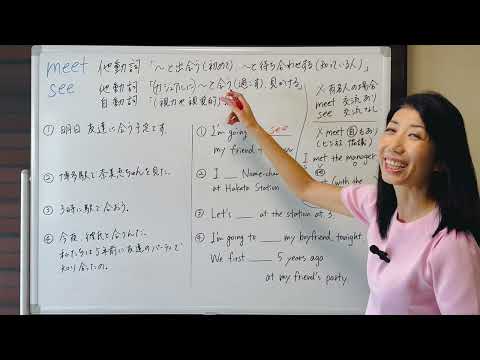 meet 他動詞「〜と出会う(初めて) 〜と待ち合わせする(知っている人)」
see 他動詞「(カジュアルに)〜と会う(過ごす)、見かける」
自動詞「(視力や視覚的に)
① 明日友達に会う予定です。
② 博多駅で
ちゃんを見た。
③ 3時に駅で会おう。
④ 今夜、彼氏と会うんだ。
私たちは5年前に友達のパーティで
知り合ったの。
① I'm going see
my friend
② I __ Name-chan
at Hakata Station
③ Let's __ at the station at 3.
④ I'm going to __ my boyfriend tonight
We first __ 5 years ago
at my friend's party.
人 有名人の場合
meet 交流あり
see 交流なし
人 meet 自もあり
I met the manager
met (with the